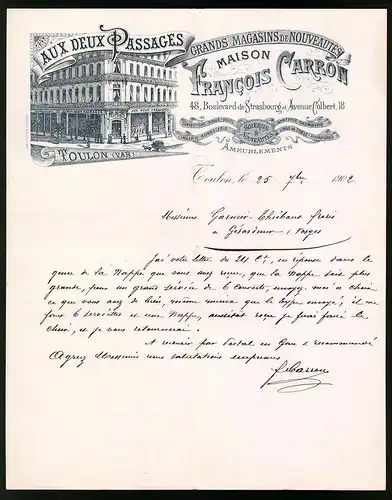 AUX DEUX PASSAGES
GRANDS MAGASINS DE NOUVEAUTÉS
MAISON
FRANÇOIS CARRON
48, Boulevard de Strasbourg et Avenue Colbert, 18
AMEUBLEMENTS
TOULON (VAR)
Toulon, le 25 7bre 1902
Messieurs Garnier-Thiebaut frères
à Gérardmer, Vosges
J'ai votre lettre du 24 Ct, en réponse dans le
genre de la Nappe que vous avez reçue, que la Nappe soit plus
grande, pour un grand service de 6 Couverts, envoyez moi à choix
ce que vous avez de bien, même mieux que le type envoyé; il me
faut 6 serviettes et une Nappe, aussitôt reçu je ferai faire le
choix, et je vous retournerai.
A envoyer par Postal en Gare et recommandé
Agréez Messieurs mes salutations empressées
F. Carron